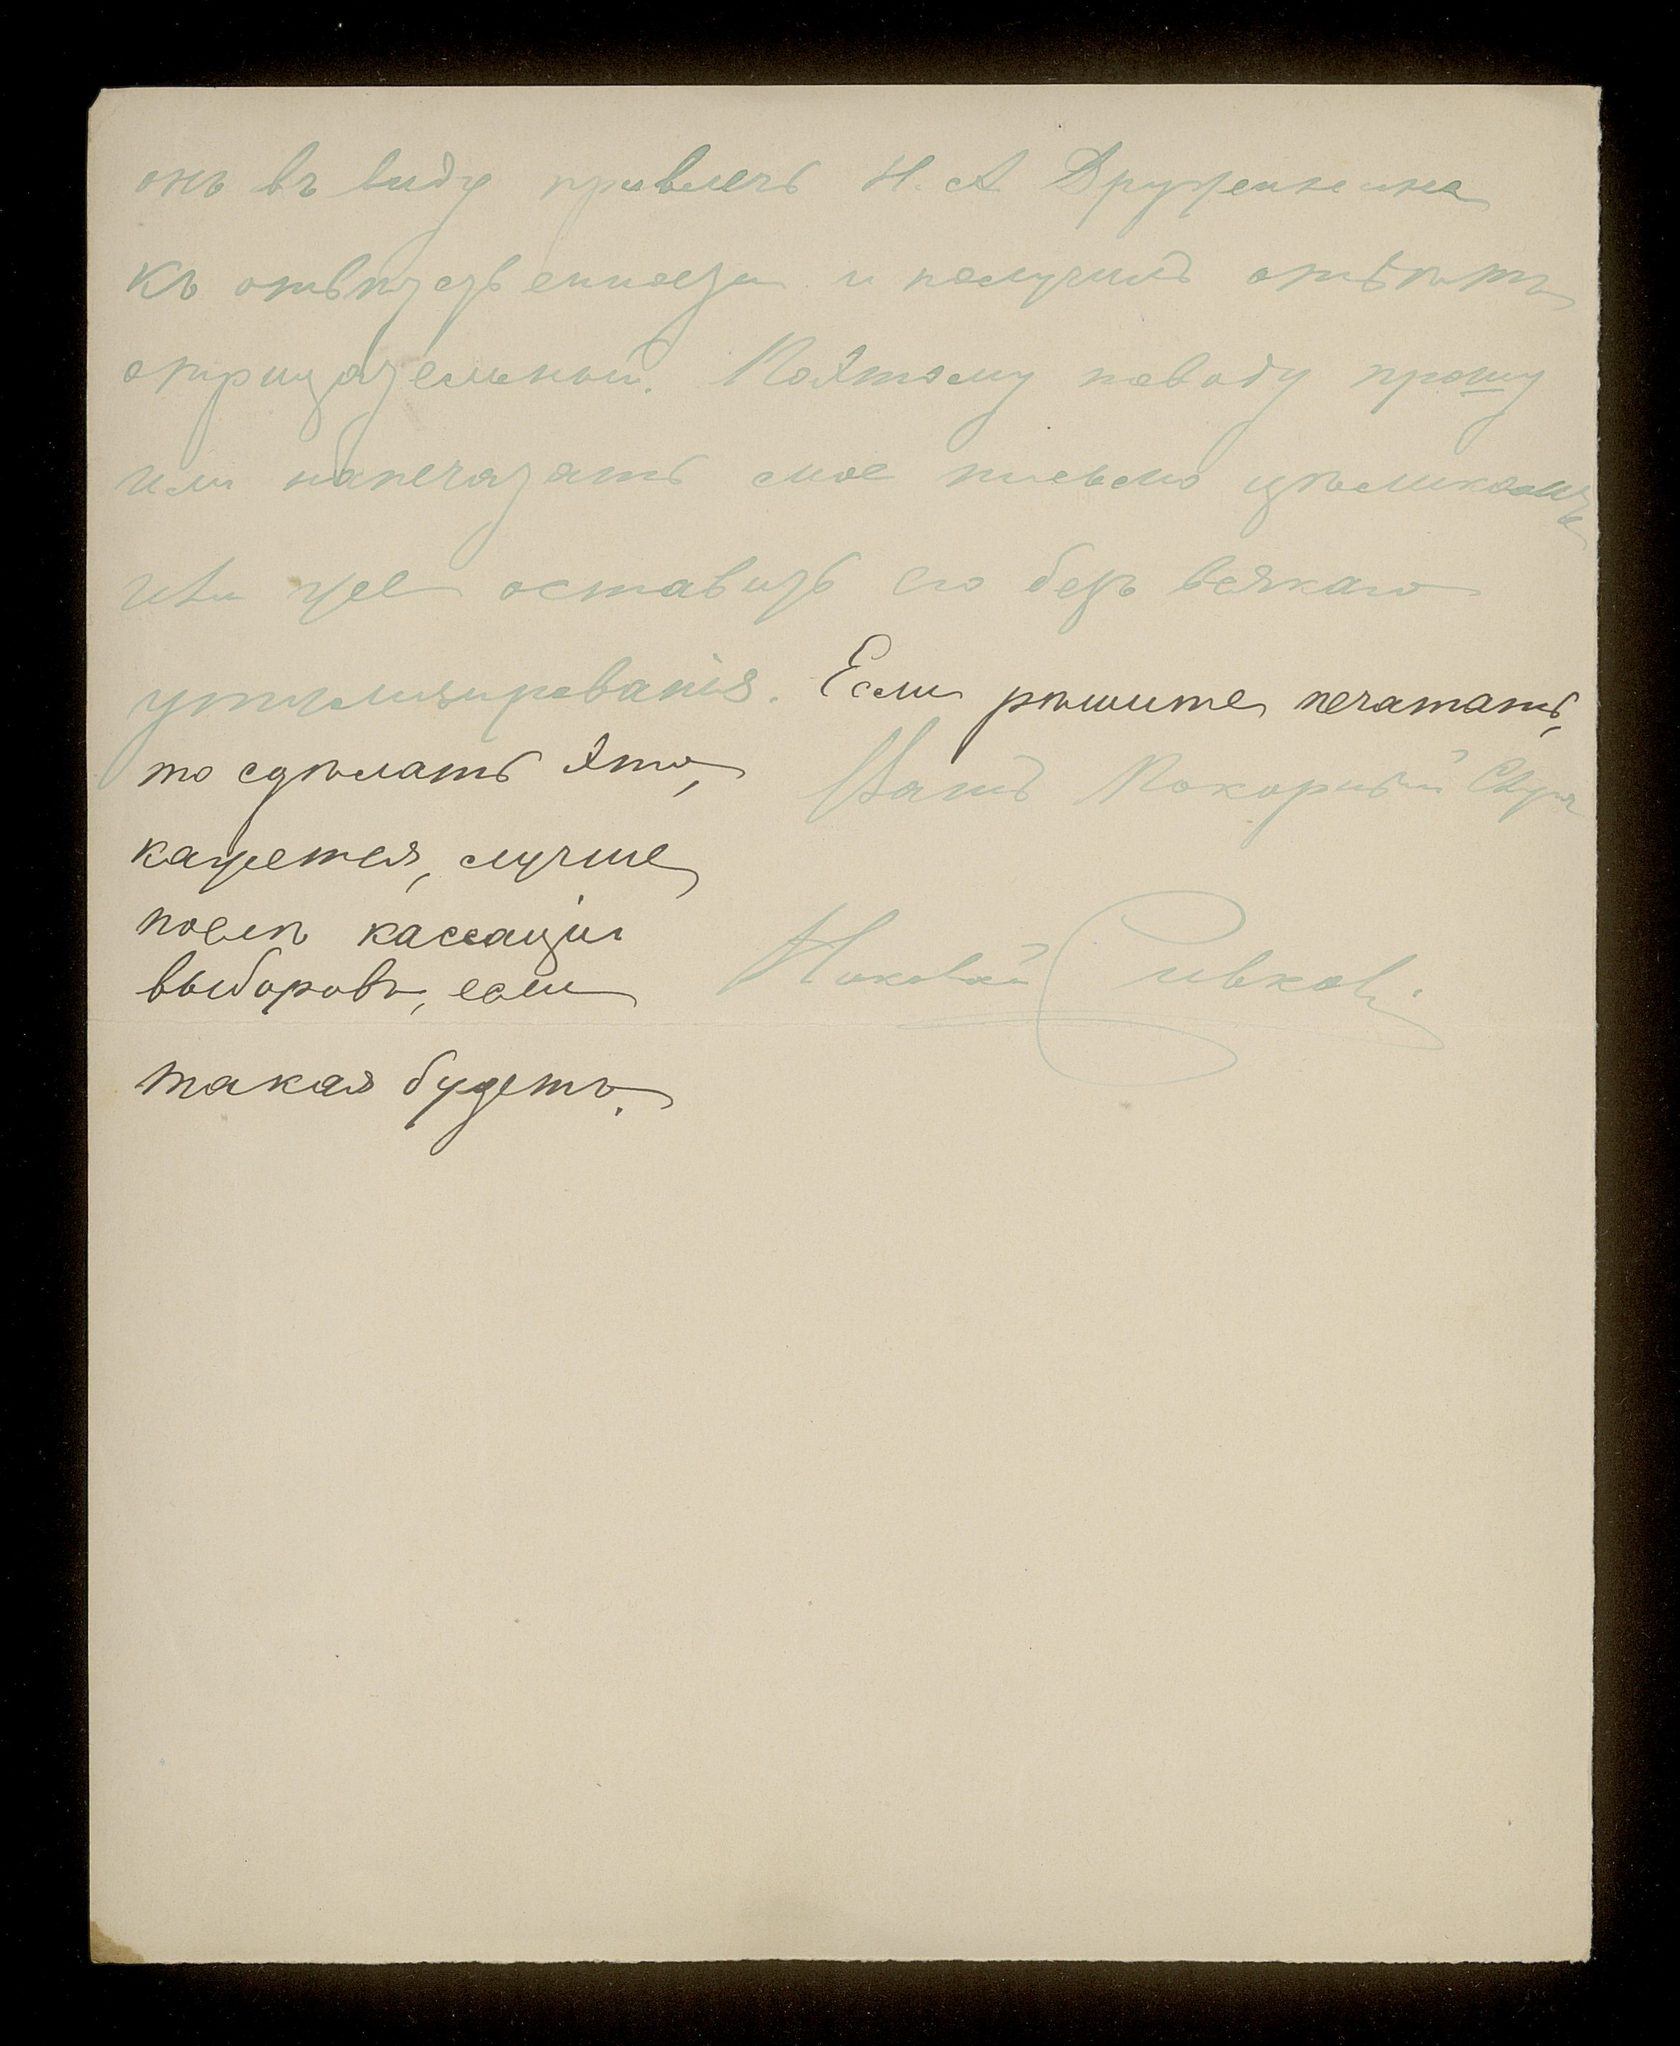 онъ въ виду привлечь Н. А Дружинина
къ отвѣтственности и получилъ отвѣтъ
отрицательный. Поэтому поводу прошу
или напечатать мое письмо цѣликомъ
или же оставить его безъ всякаго
утилизированія. Если рѣшите печатать,
то сдѣлать это,
Вашъ Покорный Слуга
кажется, лучше
послѣ кассаціи
выборовъ, если
такая будетъ.